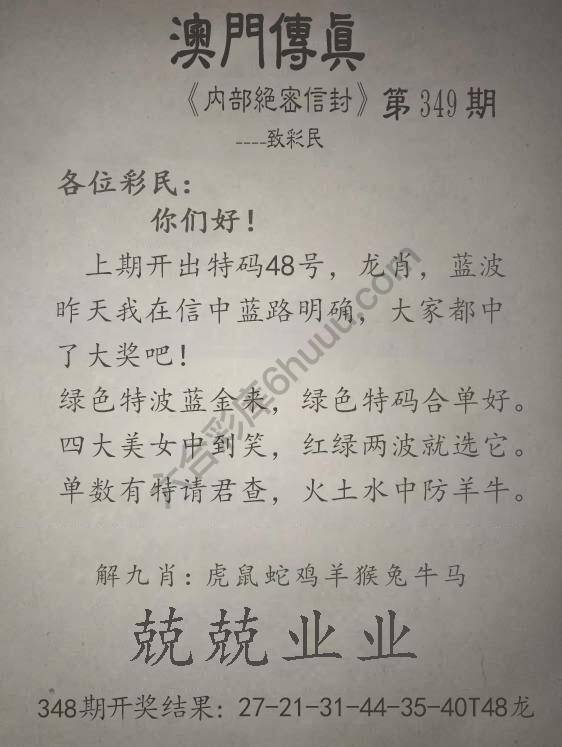 澳門傳真
《内部絕密信封》第349期
----致彩民
各位彩民：
你们好！
上期开出特码48号，龙肖，蓝波
昨天我在信中蓝路明确，大家都中
了大奖吧！
绿色特波蓝金来，绿色特码合单好。
四大美女中到笑，红绿两波就选它。
单数有特请君查，火土水中防羊牛。
解九肖：虎鼠蛇鸡羊猴兔牛马
兢兢业业
348期开奖结果：27-21-31-44-35-40T48龙
六合彩库6huuu.com